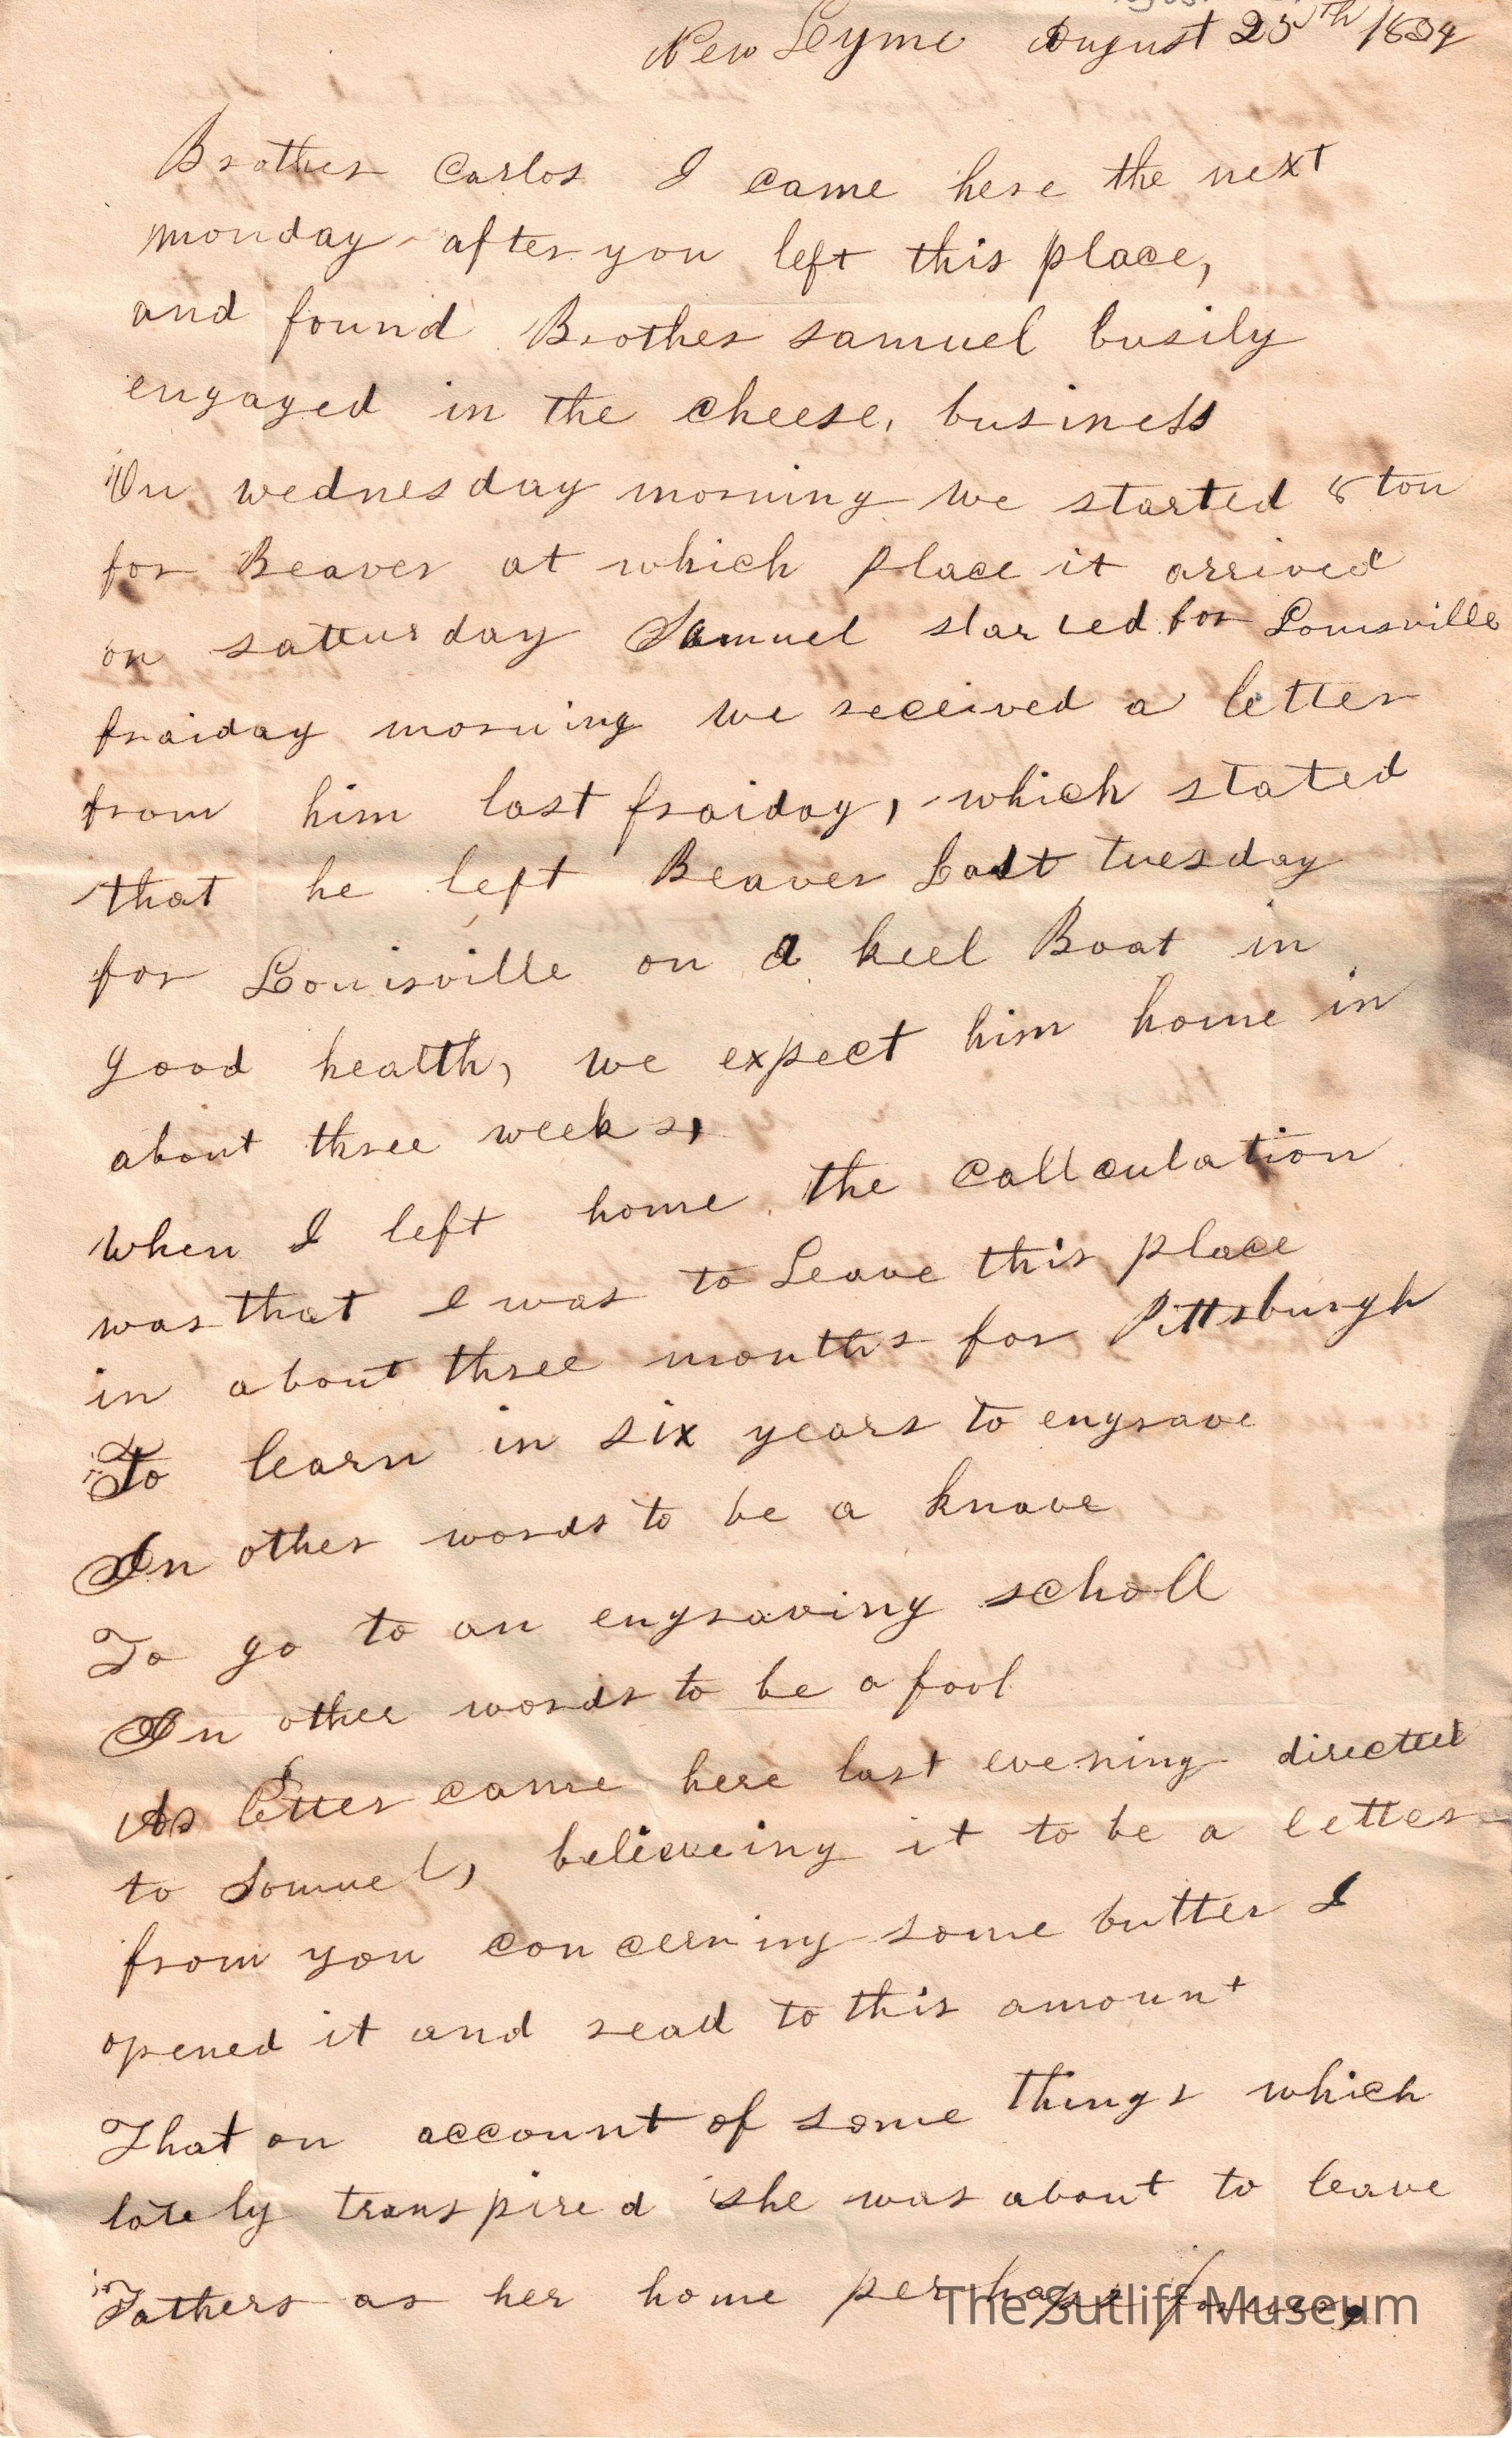 New Lyme August 25th 1834
Brother Carlos I came here the next
monday after you left this place,
and found Brother samuel busily
engaged in the cheese, business
On wednesday morning we started 8 ton
for Beaver at which place it arrived
on satturday Samuel started for Louisville
fraiday morning we received a letter
from him last fraiday, which stated
that he left Beaver Last tuesday
for Louisville on a keel Boat in
good health, we expect him home in
about three weeks,
when I left home the callculation
was that I was to Leave this place
in about three months for Pittsburgh
To learn in six years to engrave
In other words to be a knave
To go to an engraving scholl
In other words to be a fool
As letter came here last evening directed
to Samuel, believeing it to be a letter
from you concerning some butter I
opened it and read to this amount
That on account of some things which
lately transpired she was about to leave
Fathers as her home perhaps forever,
The Sutliff Museum